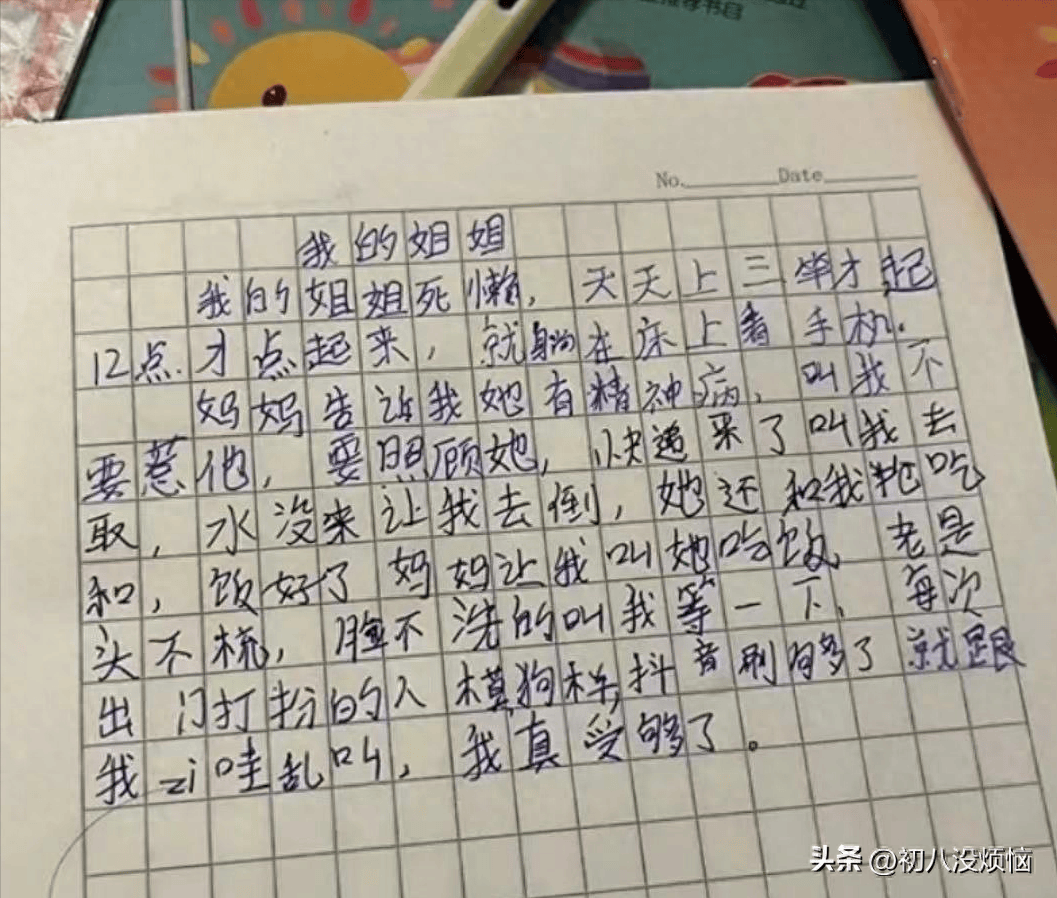 推荐书目
No. Date
我的姐姐
我的姐姐死懒，天天上三竿才起
12点.才点起来，就躺在床上看手机.
妈妈告诉我她有精神病，叫我不
要惹他，要照顾她，快递来了叫我去
取，水没来让我去倒，她还和我抢吃
和，饭好了妈妈让我叫她吃饭，老是
头不梳，脸不洗的叫我等一下，每次
出门打扮的人模狗样,抖音刷够了就跟
我zi哇乱叫，我真受够了。
头条 @初八没烦恼